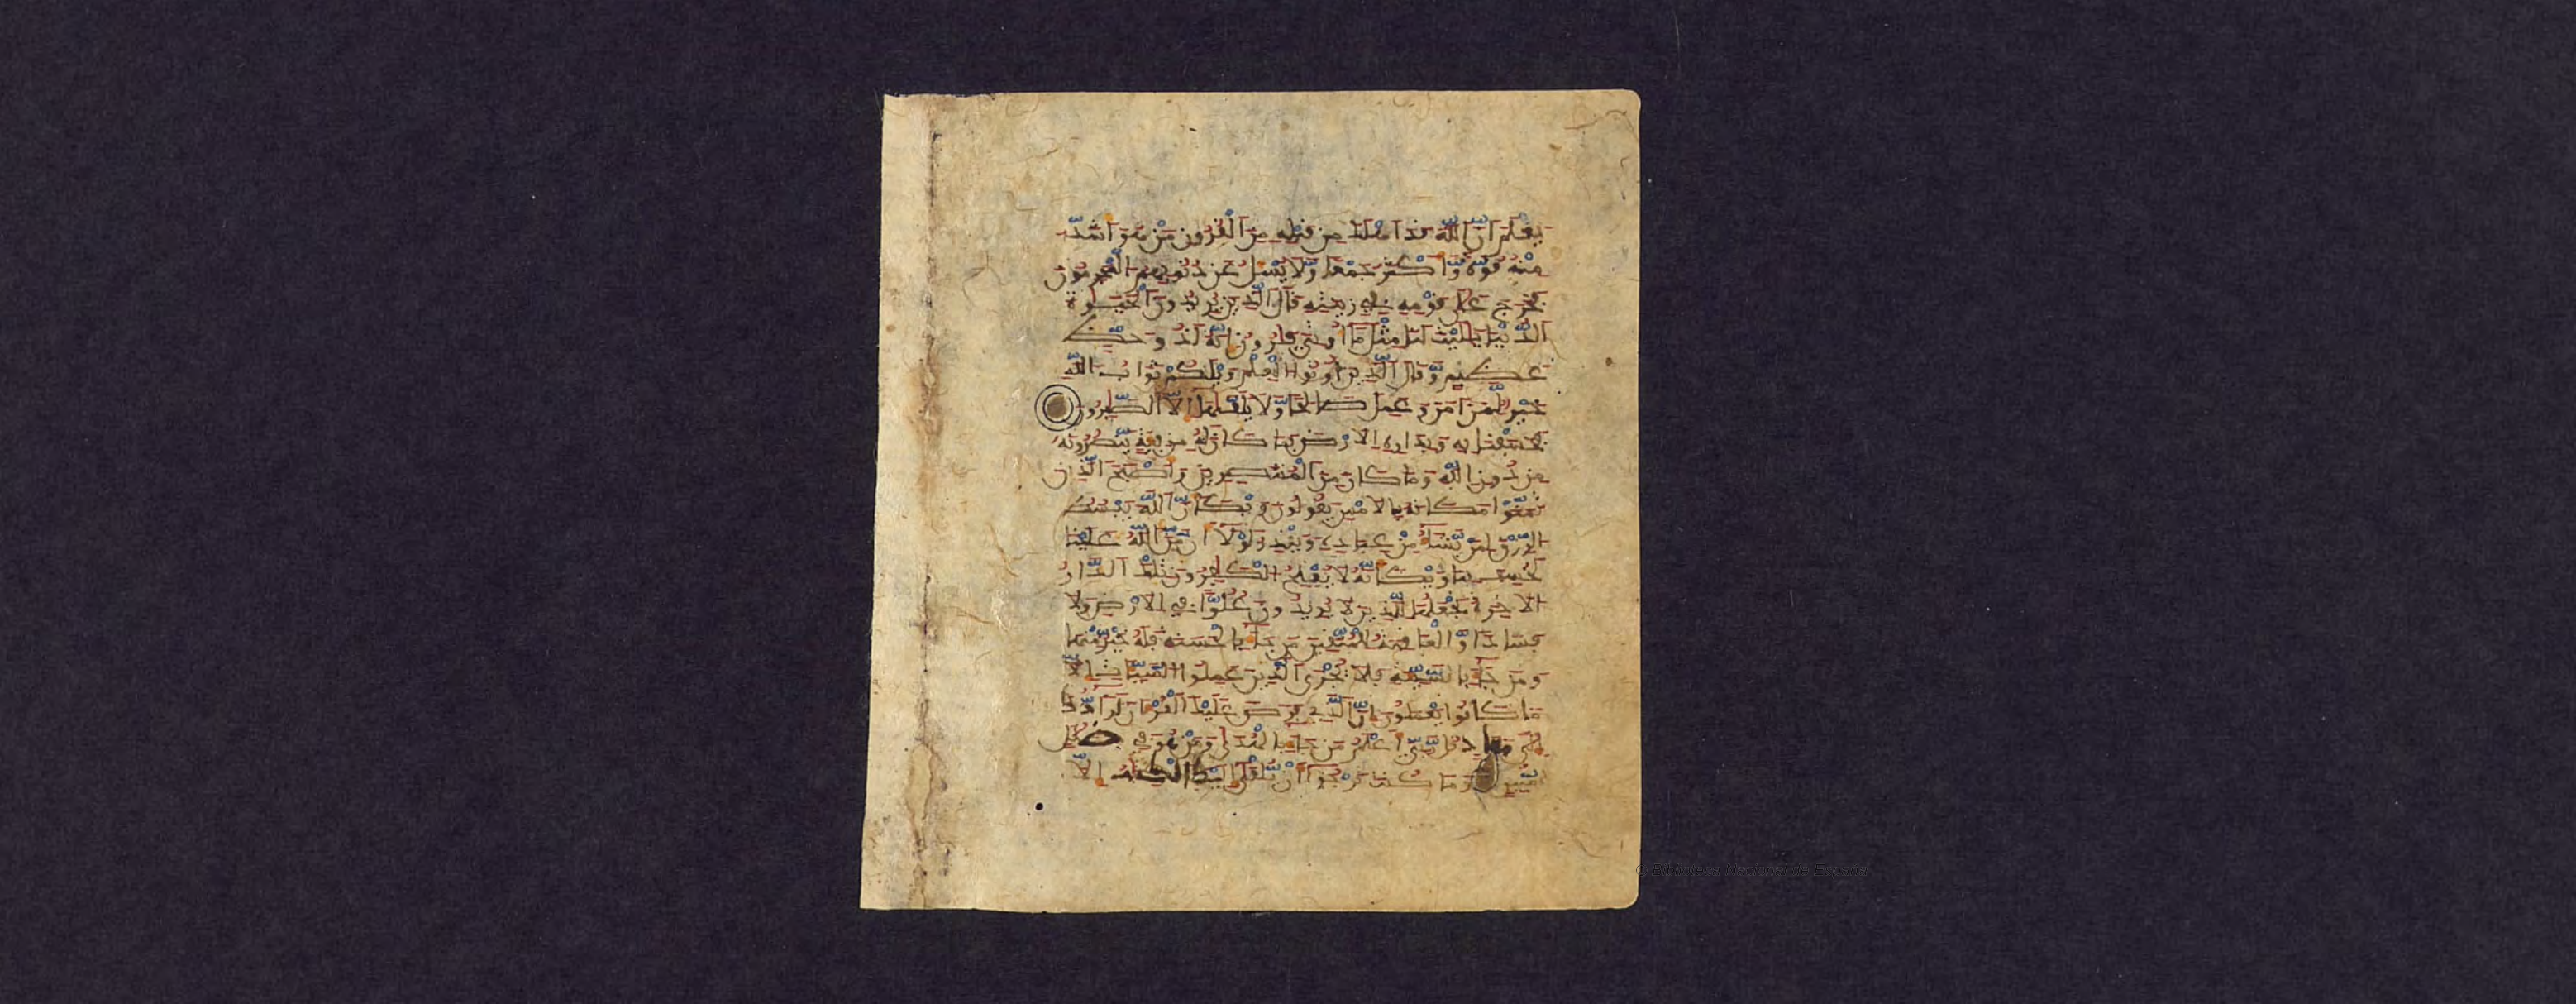 يعلم ان الله قد اهلك من قبله من القرون من هو اشد
منه قوة واكثر جمعا ولا يسل عن ذنوبهم المجرمون
فخرج على قومه في زينته قال الذين يريدون الحيوة
الدنيا يليت لنا مثل ما اوتي قرون انه لذو حظ
عظيم وقال الذين اوتوا العلم ويلكم ثواب الله
خير لمن امن وعمل صالحا ولا يلقيها الا الصبرون
فخسفنا به وبداره الارض فما كان له من فئة ينصرونه
من دون الله وما كان من المنتصرين واصبح الذين
تمنوا مكانه بالامس يقولون ويكان الله يبسط
الرزق لمن يشاء من عباده ويقدر لولا ان من الله علينا
لخسف بنا ويكانه لا يفلح الكفرون تلك الدار
الاخرة نجعلها للذين لا يريدون علوا في الارض ولا
فسادا والعاقبة للمتقين من جاء بالحسنة فله خير منها
ومن جاء بالسيئة فلا يجزى الذين عملوا السيئات الا
ما كانوا يعملون ان الذي فرض عليك القران لرادك
الى معاد قل ربي اعلم من جاء بالهدى ومن هو في ضلل
مبين وما كنت ترجوا ان يلقى اليك الكتب الا
© Biblioteca Nacional de España